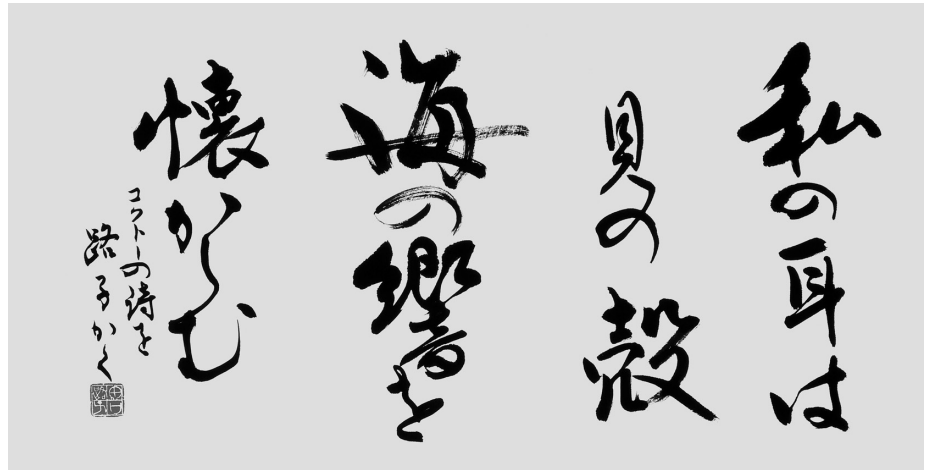 私の耳は
貝の殻
海の響を
懐かしむ
コクトーの詩を
路子かく